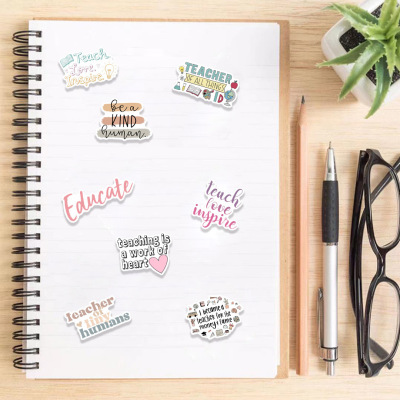 Teach
Love
Inspire
TEACHER
OF ALL THINGS
be a
KIND
human.
Educate
teach
love
inspire
teaching is
a work of
heart
teacher
of
tiny
humans
I became a
teacher for the
money & fame